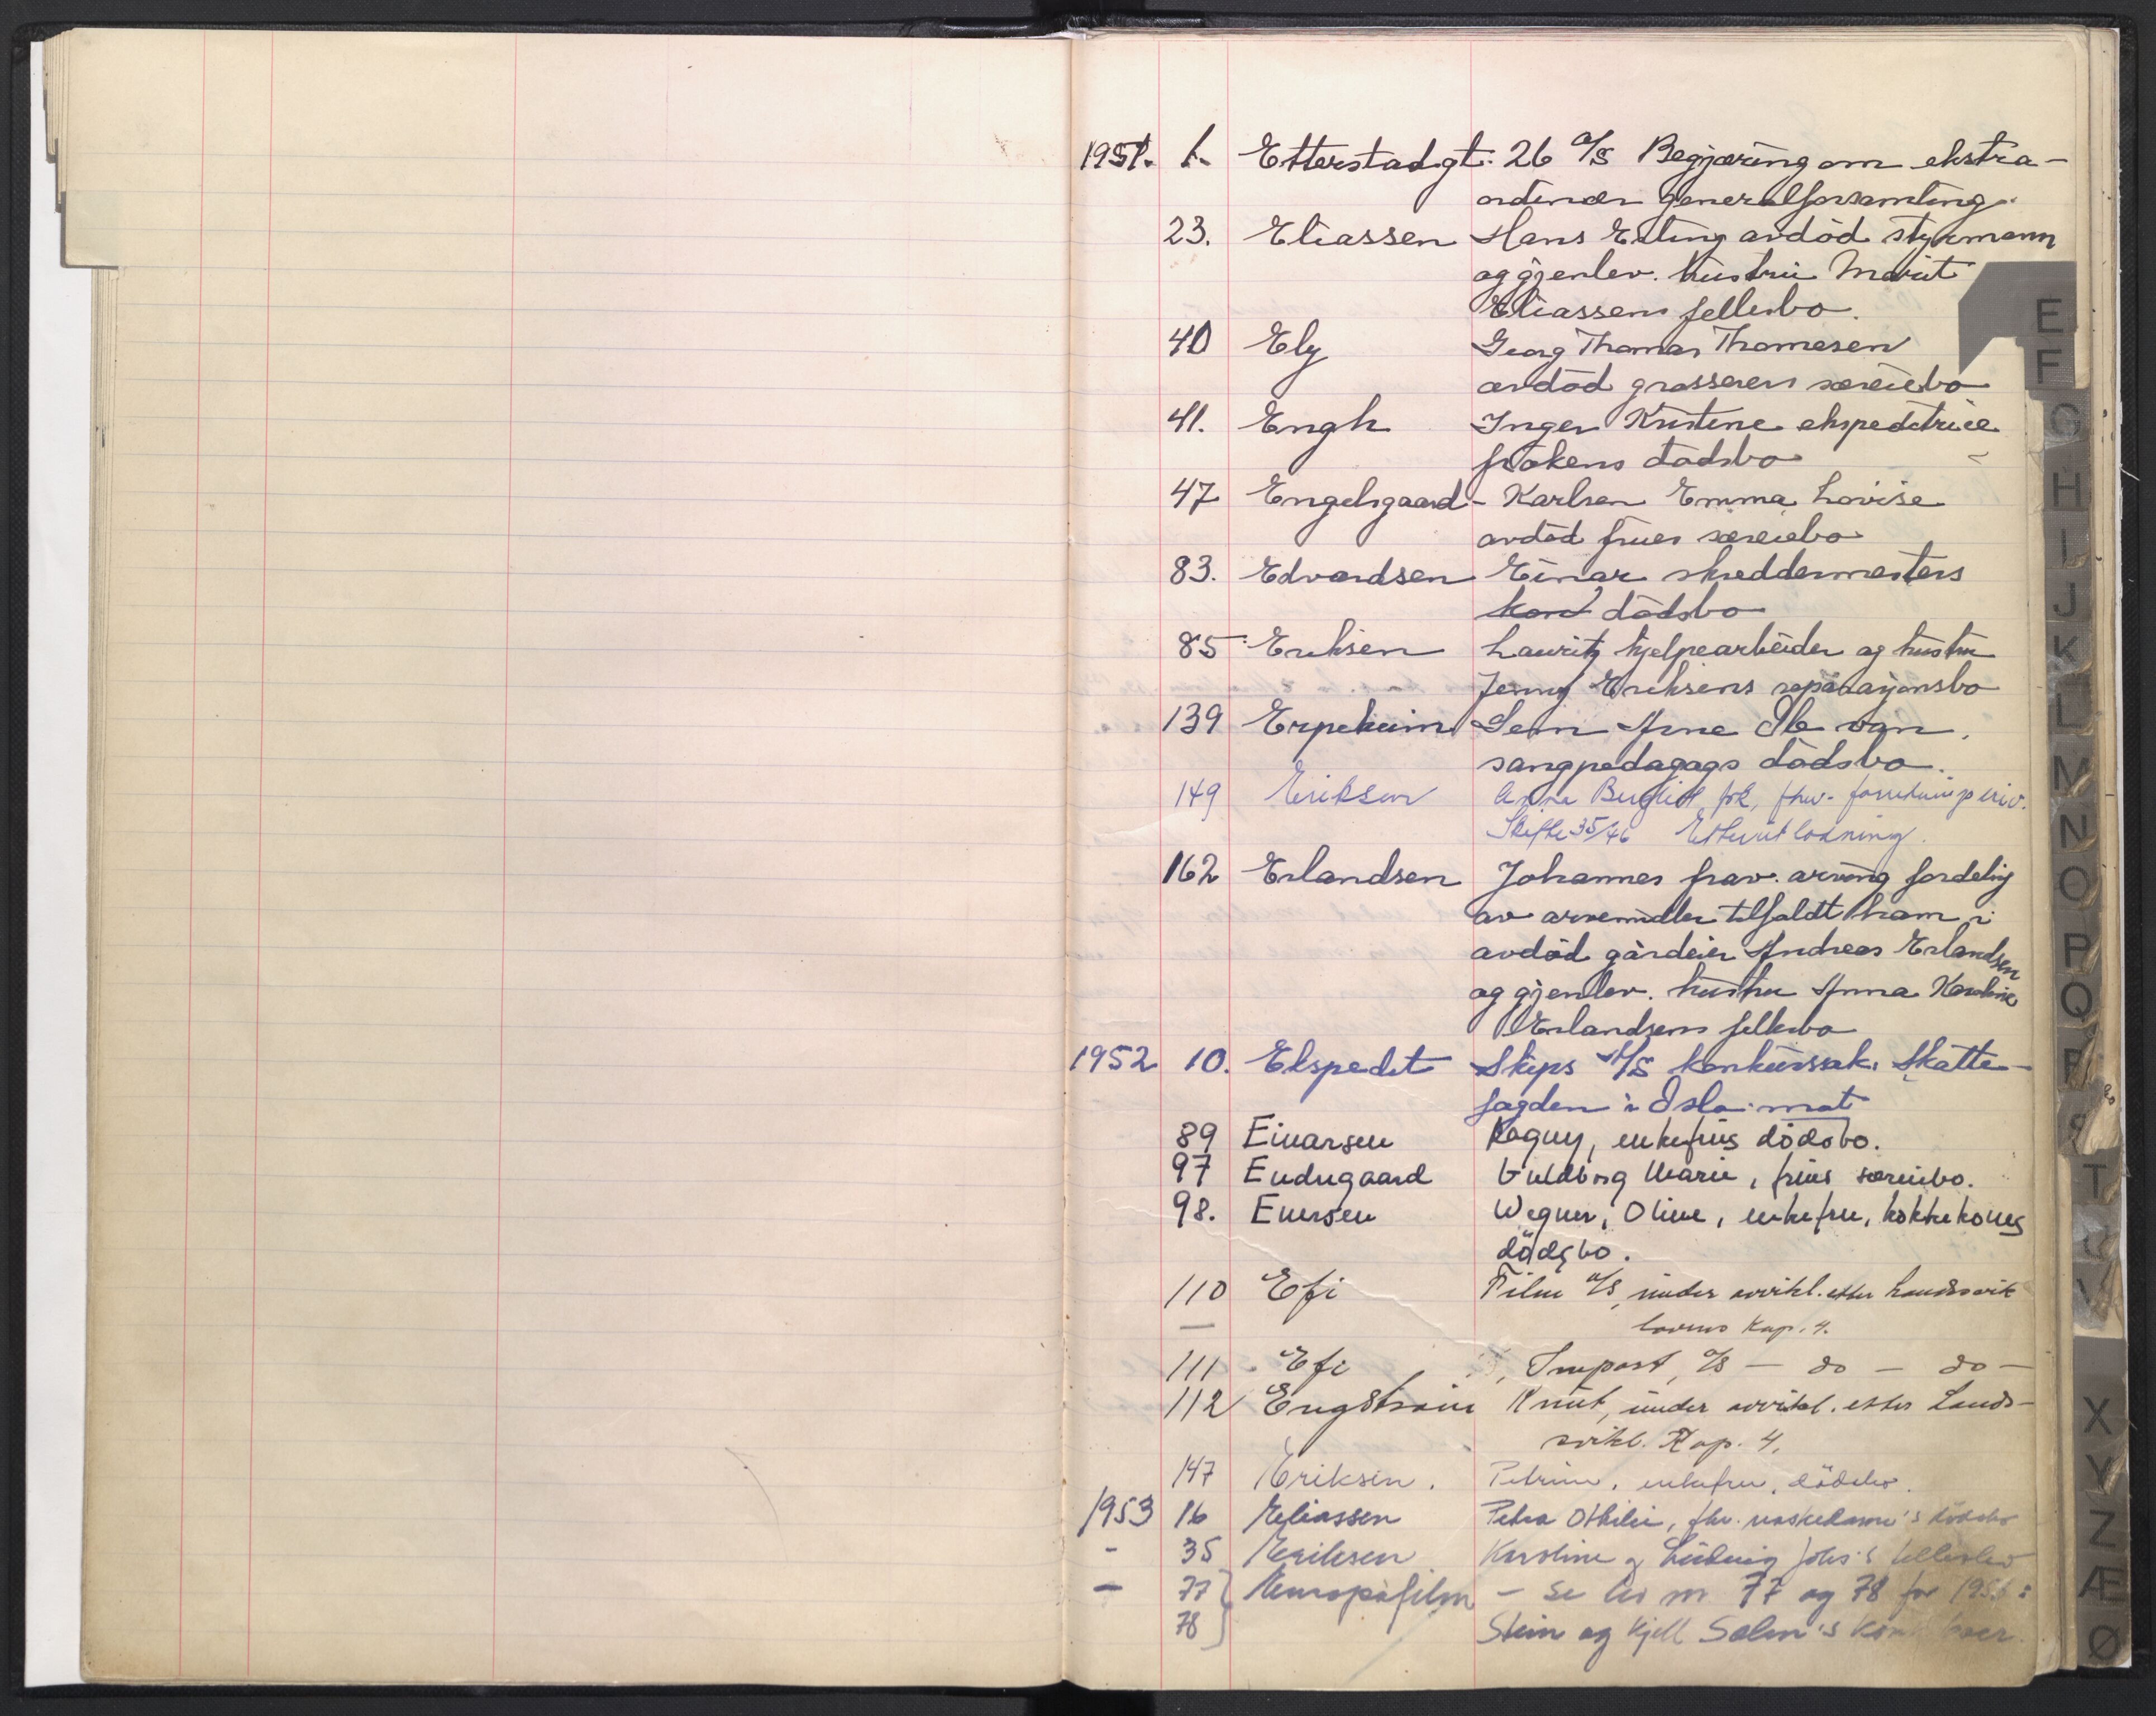 1951. 1. Etterstadgt. 26 A/S Begjæring om ekstra-
ordinær generalforsamling.
23. Eliassen Hans Erling avdöd styrmann
og gjenlev. hustru Marit
Eliassens fellesbo.
40 Ely Georg Thomas Thomesen
avdöd grosserers særeiebo
41. Engh Inger Kristine ekspeditrice
frökens dödsbo
47 Engelsgaard - Karlsen Emma Lovise
avdöd frues særeiebo
83. Edvardsen Einar skreddermesters
dödsbo
85 Eriksen Lauritz hjelpearbeider og hustru
Jenny Eriksens separasjonsbo
139 Erpekum Sem Arne Ib van
sangpedagogs dödsbo.
149 Eriksen Anna Bergliot, frk, fhv.
Skifte 35/46 Etterutlodning.
162 Erlandsen Johannes frav. arving fordeling
av arvemidler tilfaldt ham i
avdöd gårdeier Andreas Erlandsen
og gjenlev. hustru Anna Karoline
Erlandsens fellesbo
1952 10. Ekspedit Skips A/S konkurssak. Skatte-
fogden i Oslo mot
89 Einarsen Ragny, enkefrus dödsbo.
97 Endregaard Guldborg Marie, frus særeiebo.
98. Enersen Wegner, Oline, enkefru, kokkekones
dödsbo.
110 Efi Film A/S, under avvikl. etter Landssvik
lovens Kap. 4.
111 Efi , Import, A/S — do — do —
112 Engström Knut, under avvikl. etter Lands-
svikl. Kap. 4.
147 Eriksen. Petrine, enkefru, dödsbo.
1953 16 Eliassen Petra Othilie, fhv. vaskekone's dödsbo
- 35 Eriksen Karoline og Ludvig Johs's fellesbo
- 77 } Europafilm - se bo nr 77 og 78 for 1953:
78 Stein og Kjell Solem's konk.boer.
E
F
G
H
I
J
K
L
M
N
O
P
Q
R
S
T
U
V
X
Y
Z
Æ
Ø